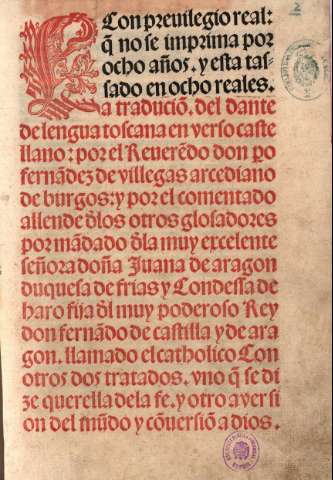 Con preuilegio real:
q̃ no se imprima por
ocho años. y esta tas-
sado en ocho reales.
La traduciõ. del dante
de lengua toscana en verso caste
llano: por el Reuerẽdo don p̃o
fernãdez de villegas arcediano
de burgos: y por el comentado
allende d̃los otros glosadores
por mãdado d̃la muy excelente
señora doña Juana de aragon
duquesa de frias y Condessa de
haro fija d̃l muy poderoso Rey
don fernãdo de castilla y de ara
gon. llamado el catholico Con
otros dos tratados. vno q̃ se di
ze querella dela fe. y otro auersi
on del mũdo y cõuersiõ a dios.